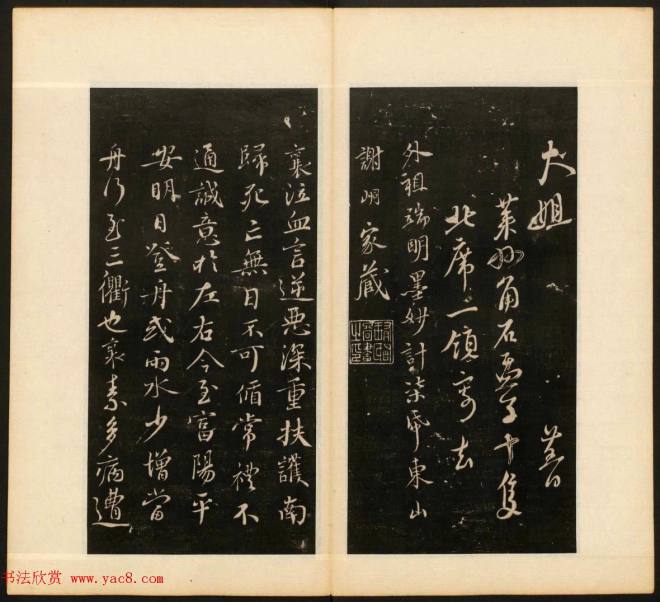 大姐
萊州角石子十隻
北席二領寄去
外祖端明墨妙計柒紙東山
謝家藏
襄泣血言逆惡深重扶護南
歸死亡無日不可循常禮不
通誠意於左右今至富陽平
安明日登舟或雨水少增當
舟行至三衢也襄素多病遭
书法欣赏 www.yac8.com